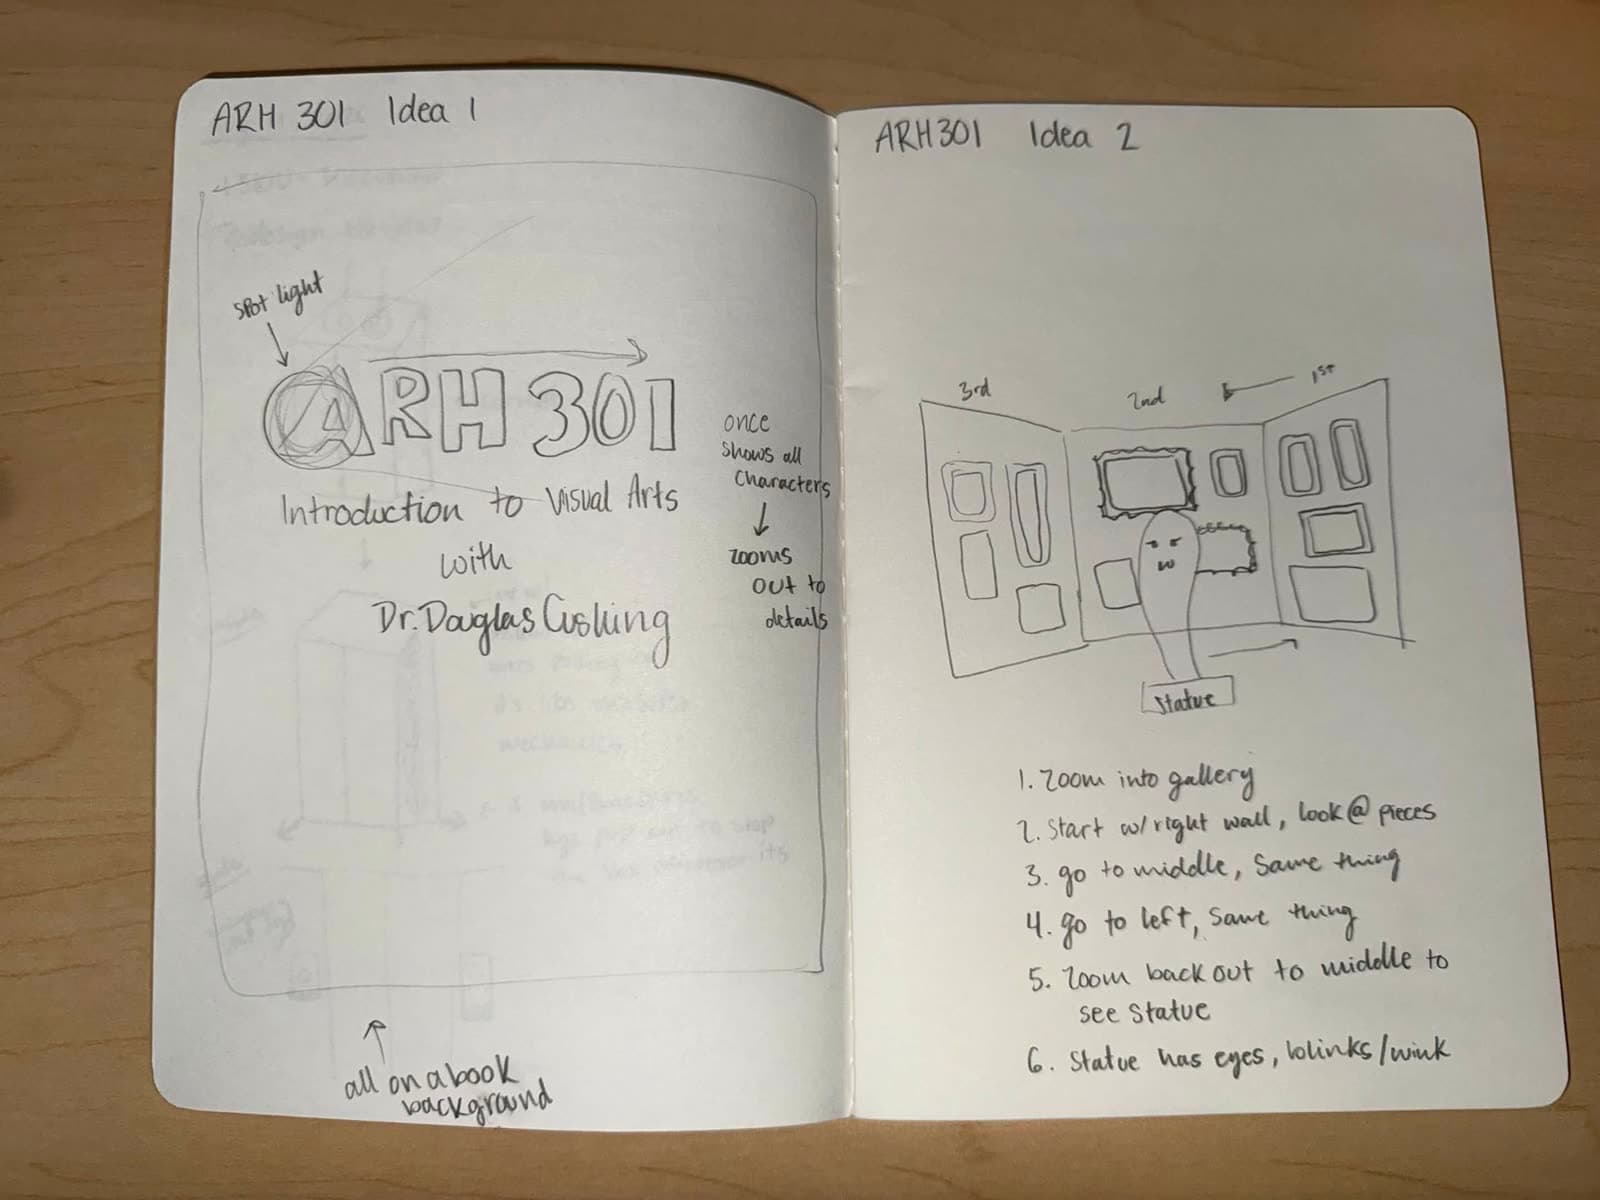 ARH 301 Idea 1
spot light
ARH 301
Introduction to Visual Arts
with
Dr. Douglas Cushing
once
shows all
characters
zooms
out to
details
all on a book
background
ARH301 Idea 2
3rd
2nd
1st
Statue
1. Zoom into gallery
2. Start w/right wall, look @ pieces
3. go to middle, Same thing
4. go to left, Same thing
5. Zoom back out to middle to
see Statue
6. Statue has eyes, blinks/wink